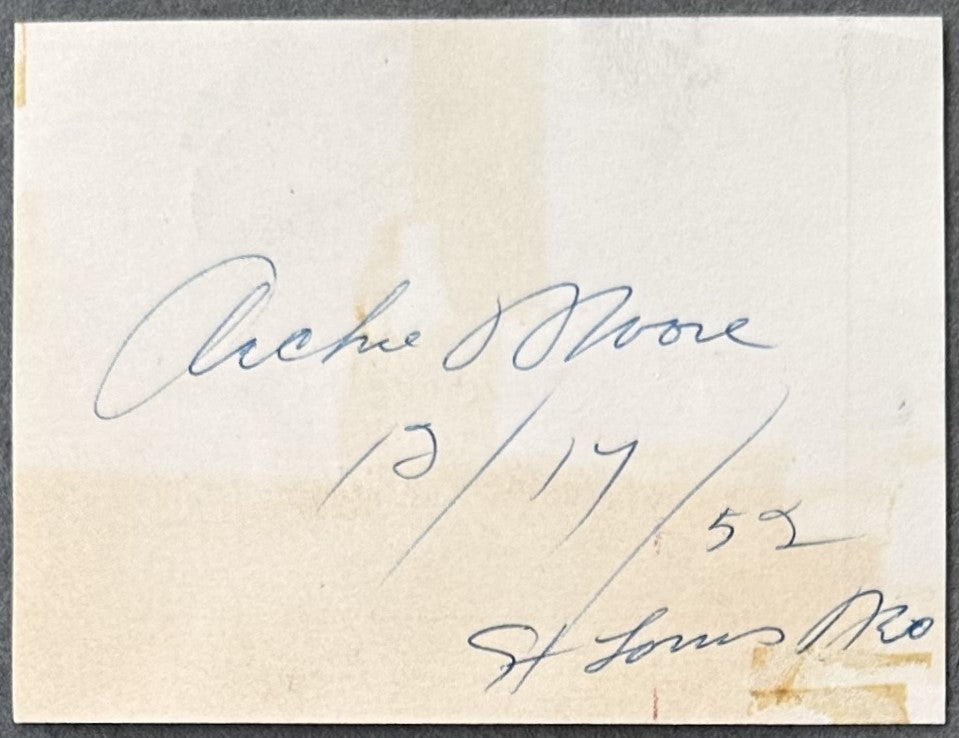 Archie Moore
12/17/52
St Louis Mo